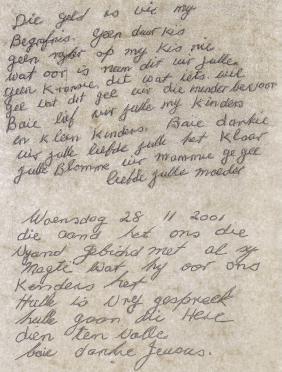 Die geld is vir my
Begrafnis. Geen duur kis
geen ruyter op my kis nie
wat oor is neem dit vir julle.
geen Kranse, dit wat iets wil
gee laat dit gee vir die minder bevoor
Baie lief vir julle my kinders
en Klein Kinders. Baie dankie
vir julle liefde julle het Klaar
julle Blomme vir mammie ge gee
liefde julle moeder
Woensdag 28 11 2001
die aand het ons die
Vyand gebind met al sy
Magte wat hy oor ons
Kenders het
Hulle is Vry gespreek
hulle gaan die Here
dien ten volle
baie danke Jeusus.